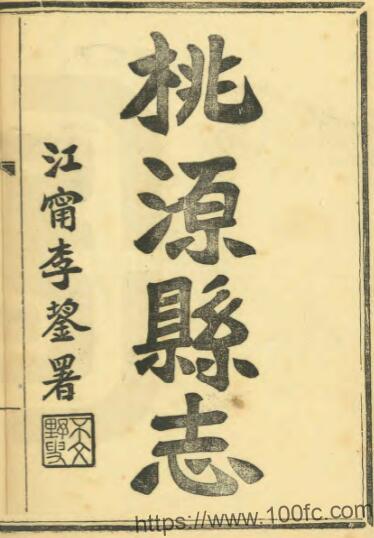 桃源縣志
江甯李鋆署
不文野叟
https://www.100fc.com